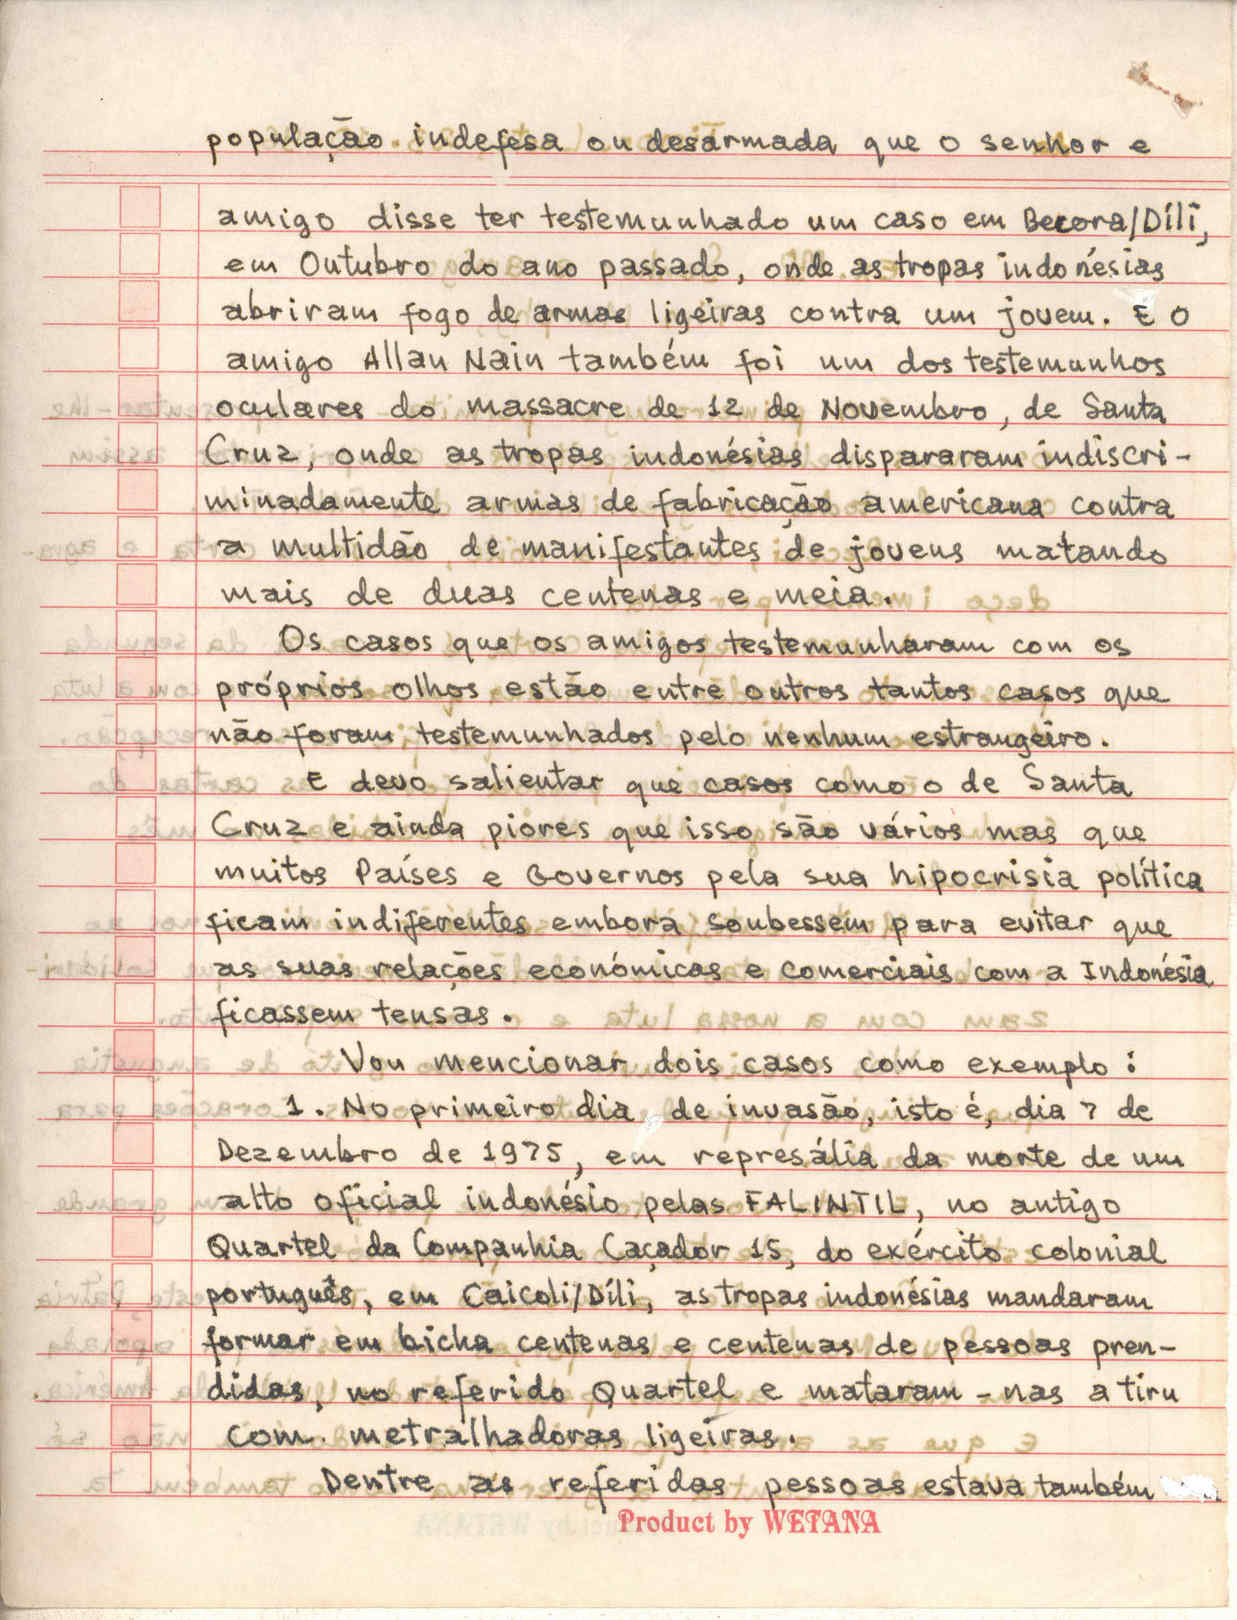 população indefesa ou desarmada que o senhor e
amigo disse ter testemunhado um caso em Becora/Díli,
em Outubro do ano passado, onde as tropas indonésias
abriram fogo de armas ligeiras contra um jovem. E o
amigo Allan Nain também foi um dos testemunhos
oculares do massacre de 12 de Novembro, de Santa
Cruz, onde as tropas indonésias dispararam indiscri-
minadamente armas de fabricação americana contra
a multidão de manifestantes de jovens matando
mais de duas centenas e meia.
Os casos que os amigos testemunharam com os
próprios olhos estão entre outros tantos casos que
não foram testemunhados pelo nenhum estrangeiro.
E devo salientar que casos como o de Santa
Cruz e ainda piores que isso são vários mas que
muitos Países e Governos pela sua hipocrisia política
ficam indiferentes embora soubessem para evitar que
as suas relações económicas e comerciais com a Indonésia
ficassem tensas.
Vou mencionar dois casos como exemplo:
1. No primeiro dia de invasão, isto é, dia 7 de
Dezembro de 1975, em represália da morte de um
alto oficial indonésio pelas FALINTIL, no antigo
Quartel da Companhia Caçador 15, do exército colonial
português, em Caicoli/Díli, as tropas indonésias mandaram
formar em bicha centenas e centenas de pessoas pren-
didas, no referido Quartel e mataram-nas a tiru
com metralhadoras ligeiras.
Dentre as referidas pessoas estava também
Product by WETANA